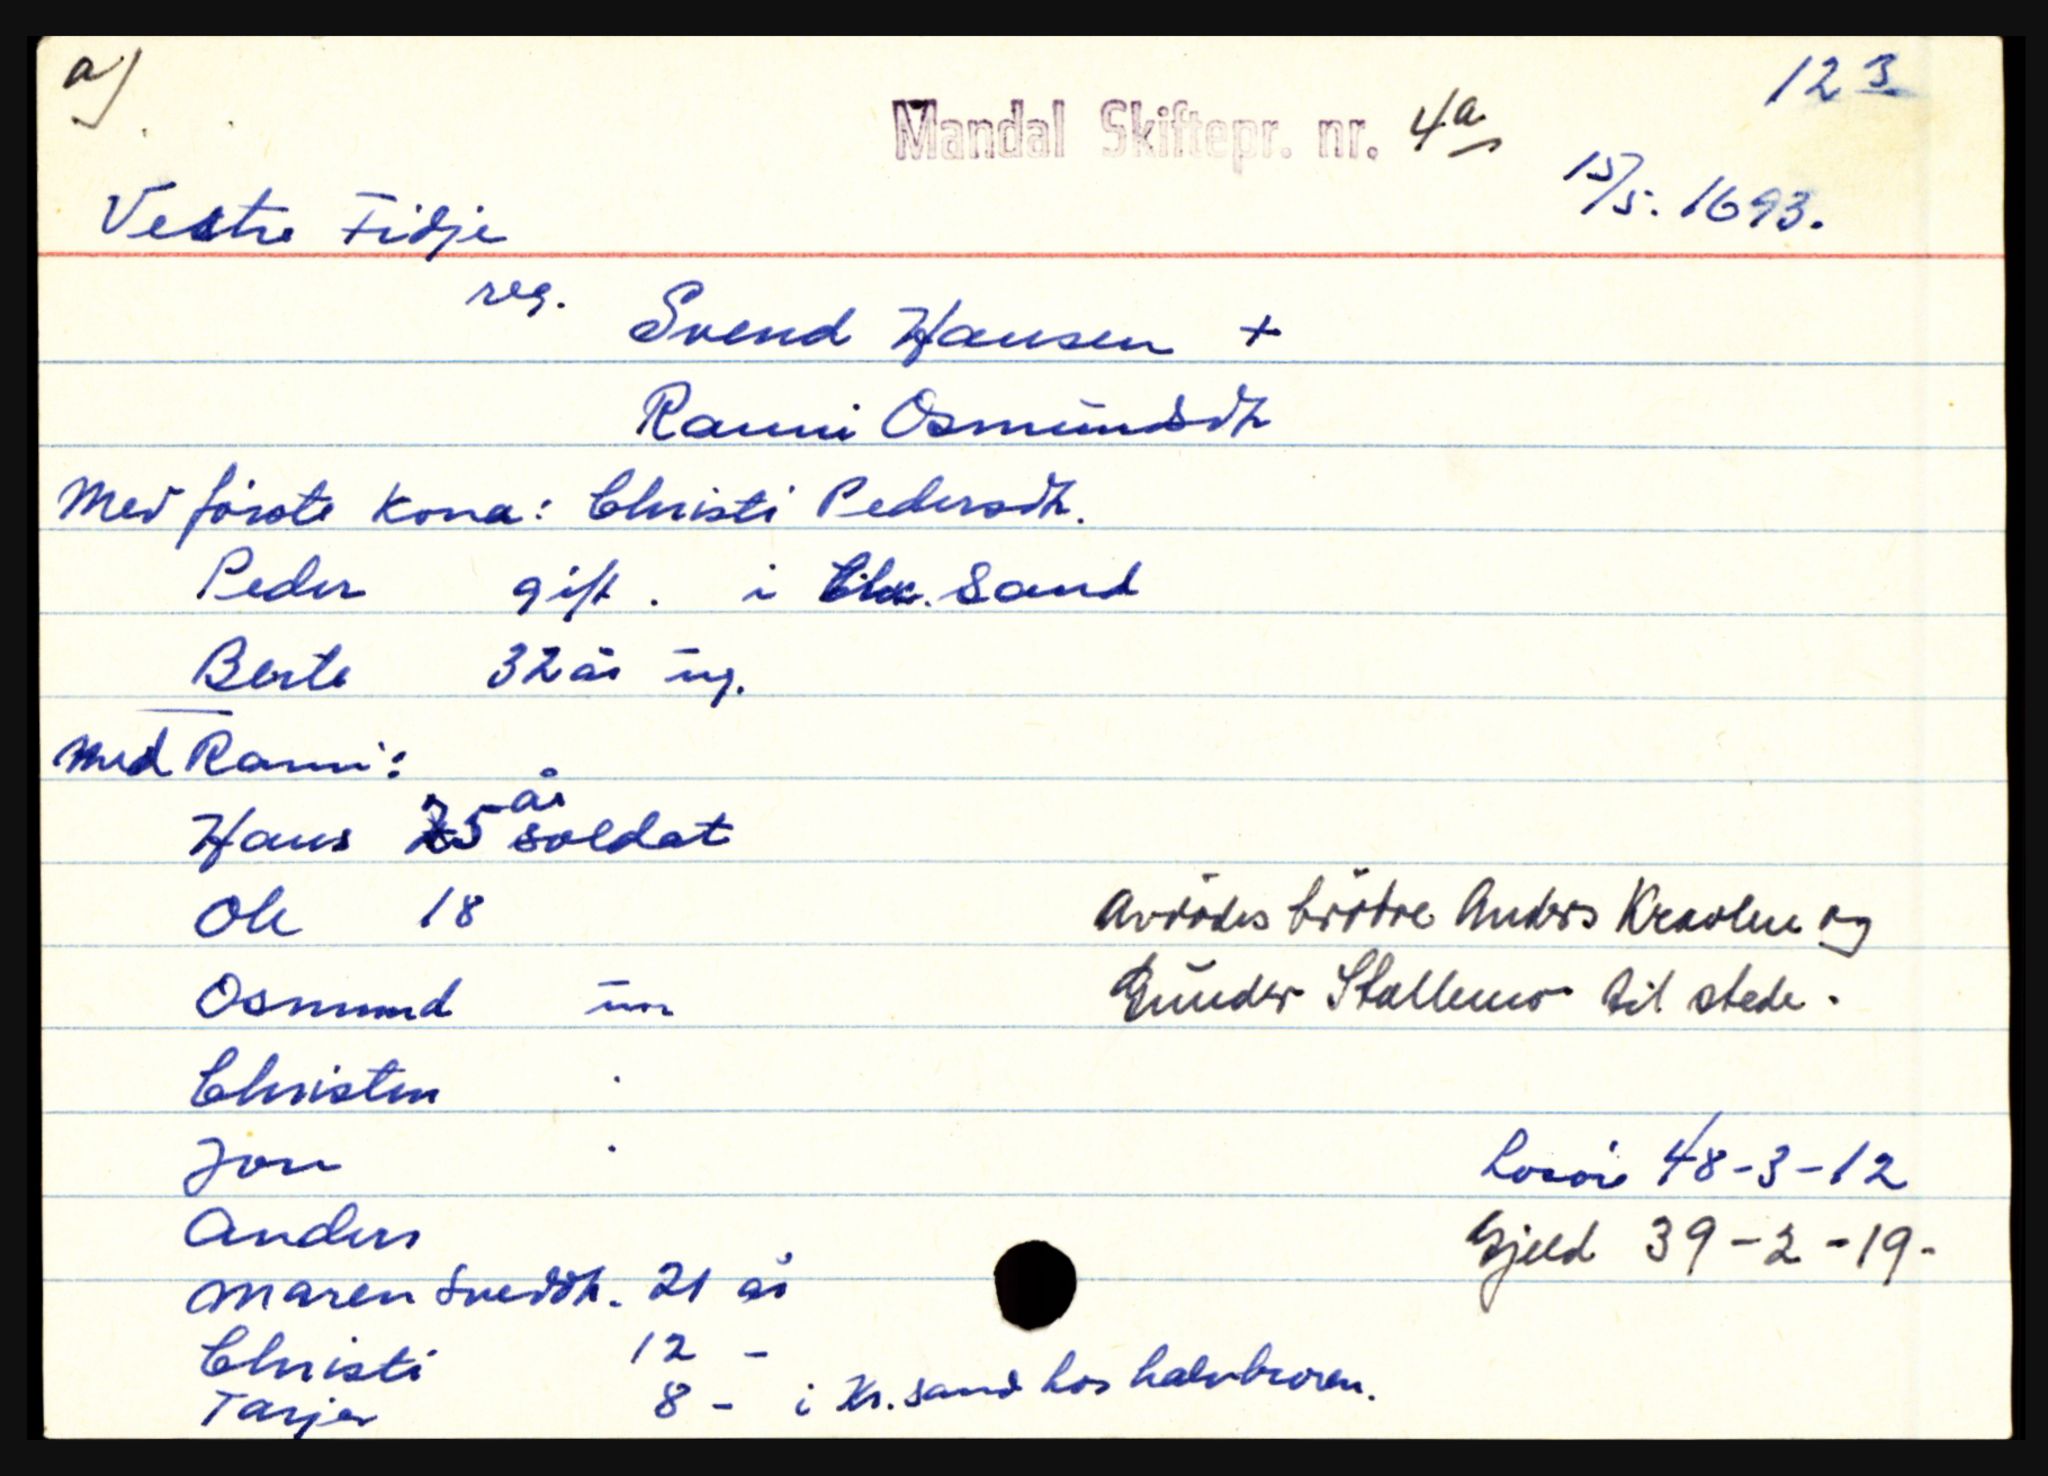 a)
123
Mandal Skiftepr. nr. 4a
15/5. 1693.
Vestre Fidje
reg. Svend Hansen +
Ranni Osmundsdtr
Med første Kona: Christi Pedersdtr.
Peder gift. i Chr. Sand
Berte 32 år ug.
Med Ranni:
Hans 25 år soldat
Ole 18
Osmund um
Christen
Jon
Anders
Maren Svensdtr. 21 år
Christi 12 -
Tarjer 8 - i Kr. sand hos halvbroren.
Avdödes brödre Anders Kraolen og
Gunder Stallemo til stede.
Losöre 48-3-12
Gjeld 39-2-19-